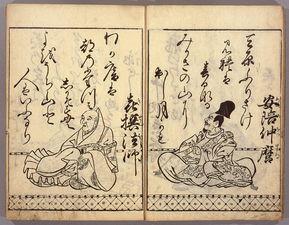 安陪仲麿
天の原ふりさけ
見れは
春日なる
みかさの山に
出し月かも
喜撰法師
わか庵は
都のたつみ
しかそすむ
よをうち山と
人はいふなり